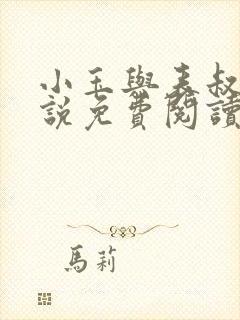 小玉與表叔
說免費閱讀
馬莉